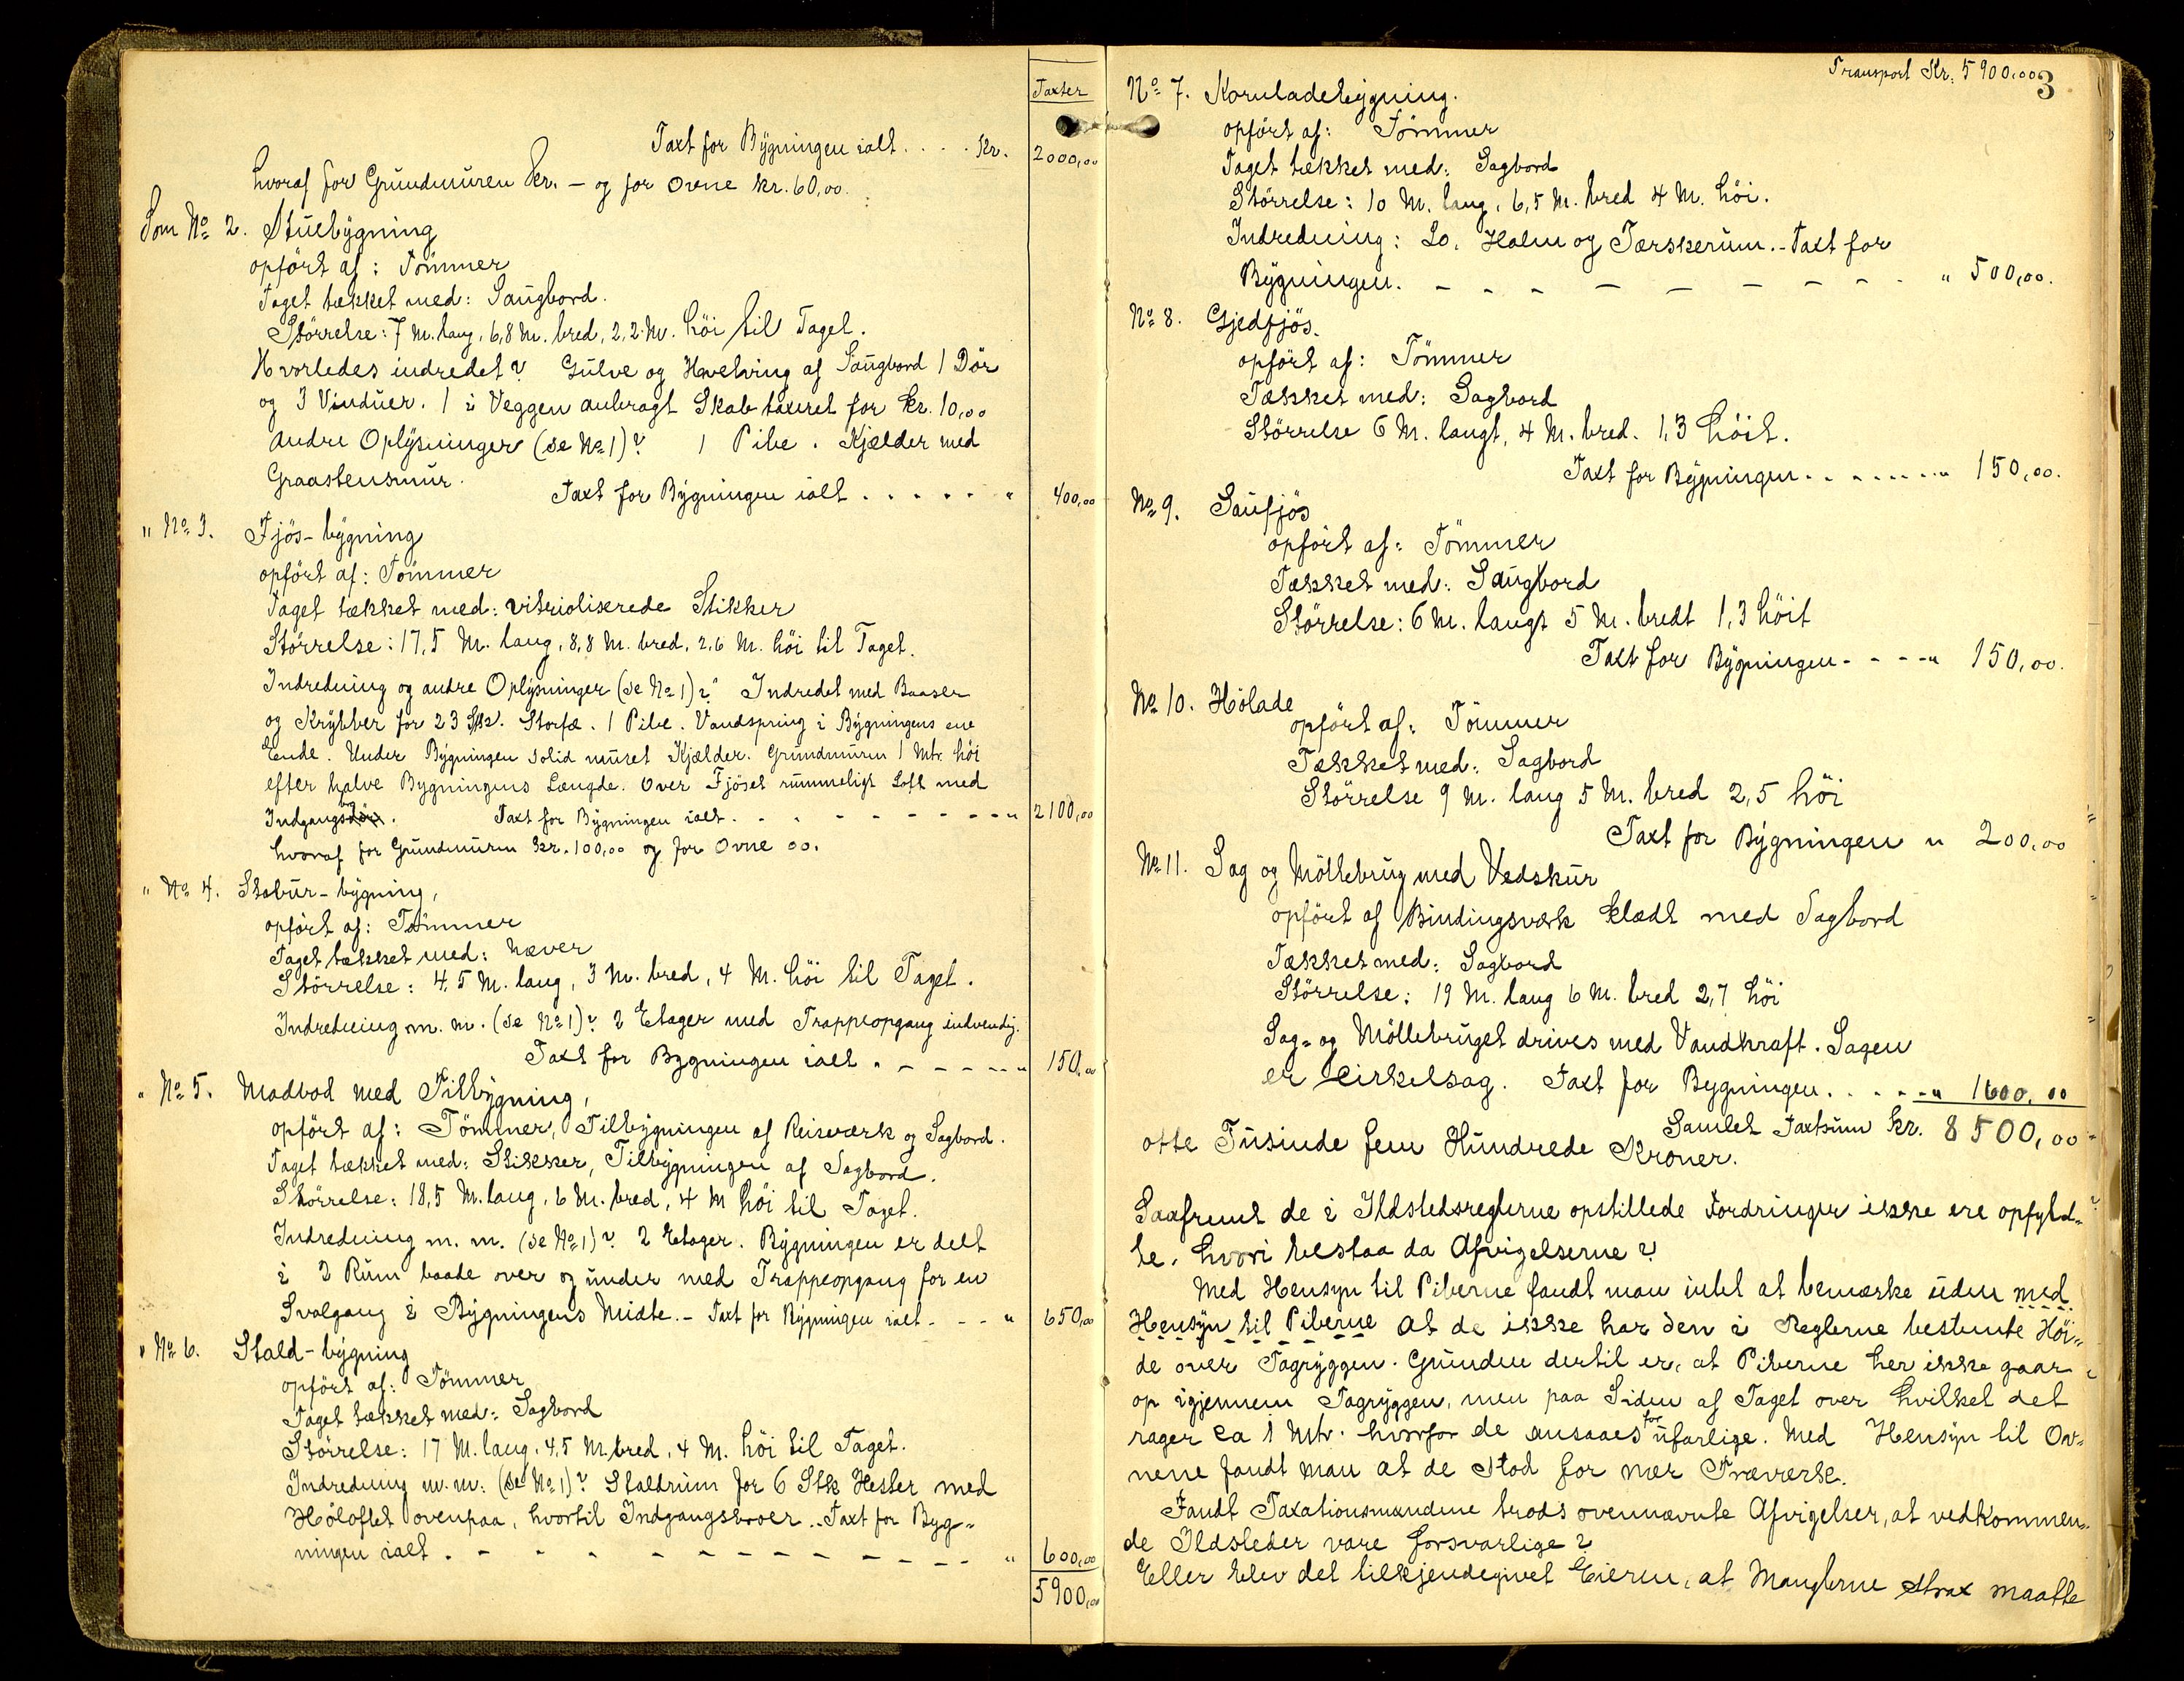 Taxter
Taxt for Bygningen ialt . . . . Kr. 2000,00
hvoraf for Grundmuren Kr. – og for Ovne Kr. 60,00.
Som No 2. Stuebygning
opført af: Tømmer
Taget tækket med: Saugbord.
Størrelse: 7 M. lang, 6,8 M. bred, 2,2 M. høi til Taget.
Hvorledes indredet? Gulve og Hvelving af Saugbord 1 Dør
og 3 Vinduer. 1 i Veggen anbragt Skab taxeret for Kr. 10,00
andre Oplysninger (se No 1)? 1 Pibe. Kjælder med
Graastensmur.
Taxt for Bygningen ialt . . . . . " 400,00
" No 3. Fjøs-bygning
opført af: Tømmer
Taget tækket med: vitrioliserede Stikker
Størrelse: 17,5 M. lang, 8,8 M. bred, 2,6 M. høi til Taget.
Indredning og andre Oplysninger (se No 1)? Indredet med Baaser
og Krybber for 23 Stk. Storfæ. 1 Pibe. Vandspring i Bygningens ene
Ende. Under Bygningen solid muret Kjælder. Grundmuren 1 Mtr. høi
efter halve Bygningens Længde. Over Fjøset rummeligt Loft med
Indgangsbro. Taxt for Bygningen ialt - - - - - - - - " 2100,00
hvoraf for Grundmuren Kr. 100,00 og for Ovne 00.
" No 4. Stabur-bygning,
opført af: Tømmer
Taget tækket med: Næver
Størrelse: 4,5 M. lang, 3 M. bred, 4 M. høi til Taget.
Indredning m. m. (se No 1)? 2 Etager med Trappeopgang indvendig.
Taxt for Bygningen ialt . - - - - - " 150,00
" No 5. Madbod med Tilbygning,
opført af: Tømmer, Tilbygningen af Reisværk og Sagbord.
Taget tækket med: Stikker, Tilbygningen af Sagbord.
Størrelse: 18,5 M. lang, 6 M. bred, 4 M høi til Taget.
Indredning m. m. (se No 1)? 2 Etager. Bygningen er delt
i 2 Rum baade over og under med Trappeopgang for en
Svalgang i Bygningens Midte. - Taxt for Bygningen ialt - - - " 650,00
" No 6. Stald-bygning
opført af: Tømmer
Taget tækket med: Sagbord
Størrelse: 17 M. lang, 4,5 M. bred, 4 M. høi til Taget.
Indredning m. m. (se No 1)? Staldrum for 6 Stk Hester med
Høloftet ovenpaa, hvortil Indgangsbroer. - Taxt for Byg-
ningen ialt . - - - - - - - - - - - " 600,00
5900,00
Transport Kr. 5900,00
3
No 7. Kornladebygning.
opført af: Tømmer
Taget tækket med: Sagbord
Størrelse: 10 M. lang, 6,5 M. bred 4 M. høi.
Indredning: Lo, Halm og Tærskerum. - Taxt for
Bygningen. - - - - - - - - - " 500,00.
No 8. Gjedfjøs.
opført af: Tømmer
Tækket med: Sagbord
Størrelse 6 M. langt, 4 M. bred. 1,3 høit.
Taxt for Bygningen - - - - - - " 150,00.
No 9. Saufjøs
opført af: Tømmer
Tækket med: Saugbord
Størrelse: 6 M. langt 5 M. bredt 1,3 høit
Taxt for Bygningen - - - - " 150,00.
No 10. Hølade
opført af: Tømmer
Tækket med: Sagbord
Størrelse 9 M. lang 5 M. bred 2,5 høi
Taxt for Bygningen " 200,00
No 11. Sag og Møllebrug med Vedskur
opført af Bindingsværk klædt med Sagbord
Tækket med: Sagbord
Størrelse: 19 M. lang 6 M. bred 2,7 høi
Sag- og Møllebruget drives med Vandkraft. Sagen
er Cirkelsag. Taxt for Bygningen . . . - - " 1600,00
Samlet Taxtsum Kr. 8500,00
otte Tusinde fem Hundrede Kroner.
Saafremt de i Ildstedsreglerne opstillede Fordringer ikke ere opfyld-
te, hvori bestaa da Afvigelserne?
Med Hensyn til Piberne fandt man intet at bemærke uden med
Hensyn til Piberne at de ikke har den i Reglerne bestemte Høi-
de over Tagryggen. Grunden dertil er, at Piberne her ikke gaar
op igjennem Tagryggen, men paa Siden af Taget over hvilket det
rager ca 1 Mtr. hvorfor de ansaaes for ufarlige. Med Hensyn til Ov-
nene fandt man at de stod for nær Træværk.
Fandt Taxationsmændene trods ovennævnte Afvigelser, at vedkommen-
de Ildsteder vare forsvarlige?
Eller blev det tilkjendegivet Eieren, at Manglerne strax maatte